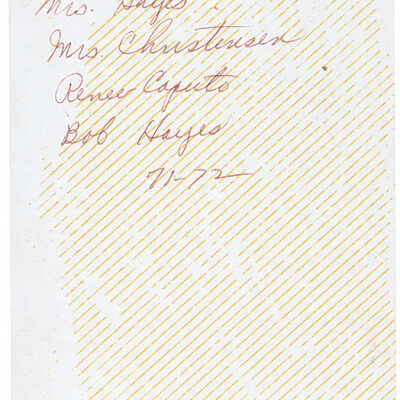 Mrs. Hayes
Mrs. Christensen
Renee Caputo
Bob Hayes
71-72